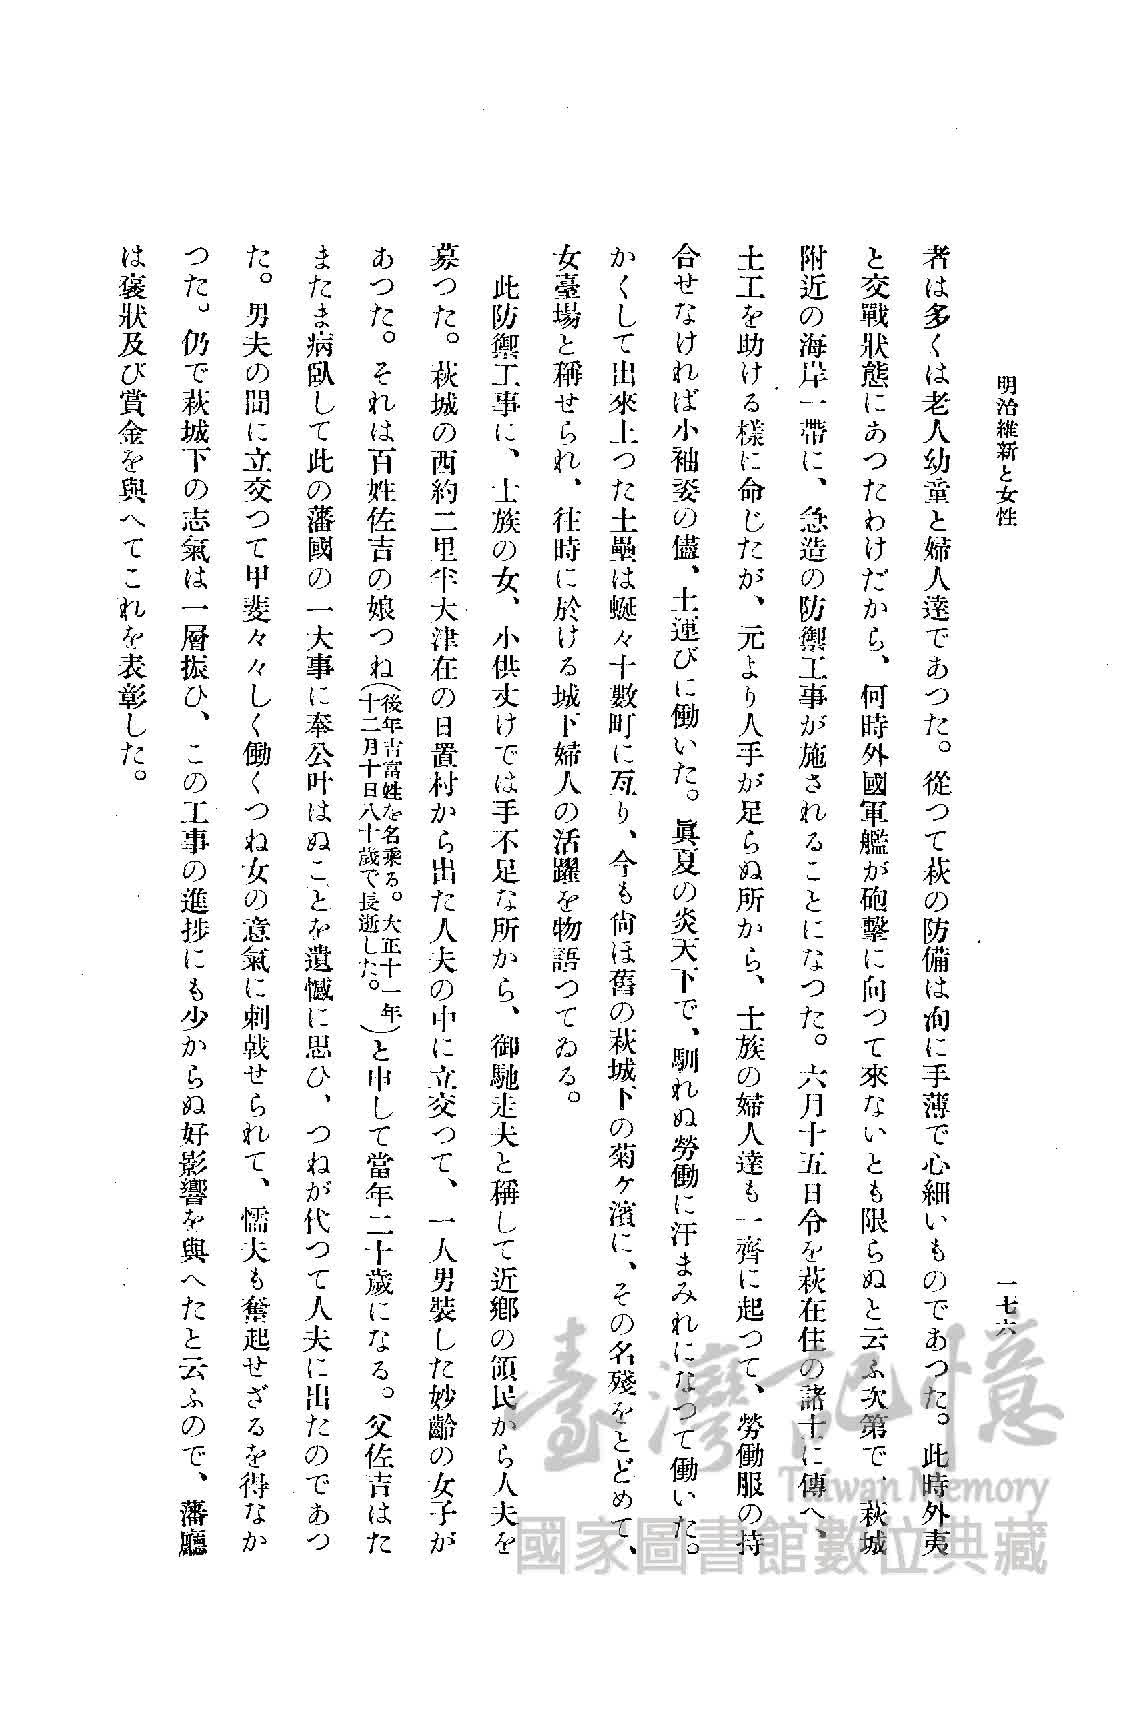 明治維新と女性
一七六
者は多くは老人幼童と婦人達であつた。從つて萩の防備は洵に手薄で心細いものであつた。此時外夷
と交戰狀態にあつたわけだから、何時外國軍艦が砲擊に向つて來ないとも限らぬと云ふ次第で、萩城
附近の海岸一帶に、急造の防禦工事が施されることになつた。六月十五日令を萩在住の諸士に傳へ、
土工を助ける樣に命じたが、元より人手が足らぬ所から、士族の婦人達も一齊に起つて、勞働服の持
合せなければ小袖姿の儘、土運びに働いた。眞夏の炎天下で、馴れぬ勞働に汗まみれになつて働いた。
かくして出來上つた土壘は蜒々十數町に亙り、今も尙ほ舊の萩城下の菊ケ濱に、その名殘をとどめて、
女臺場と稱せられ、往時に於ける城下婦人の活躍を物語つてゐる。
此防禦工事に、士族の女、小供丈けでは手不足な所から、御馳走夫と稱して近鄕の領民から人夫を
募つた。萩城の西約二里半大津在の日置村から出た人夫の中に立交つて、一人男裝した妙齡の女子が
あつた。それは百姓佐吉の娘つね(後年吉富姓を名乘る。大正十一年十二月十日八十歲で長逝した。)と申して當年二十歲になる。父佐吉はた
またま病臥して此の藩國の一大事に奉公叶はぬことを遺憾に思ひ、つねが代つて人夫に出たのであつ
た。男夫の間に立交つて甲斐々々しく働くつね女の意氣に刺戟せられて、懦夫も奮起せざるを得なか
つた。仍で萩城下の志氣は一層振ひ、この工事の進捗にも少からぬ好影響を與へたと云ふので、藩廳
は褒狀及び賞金を與へてこれを表彰した。
臺灣記憶
Taiwan Memory
國家圖書館數位典藏